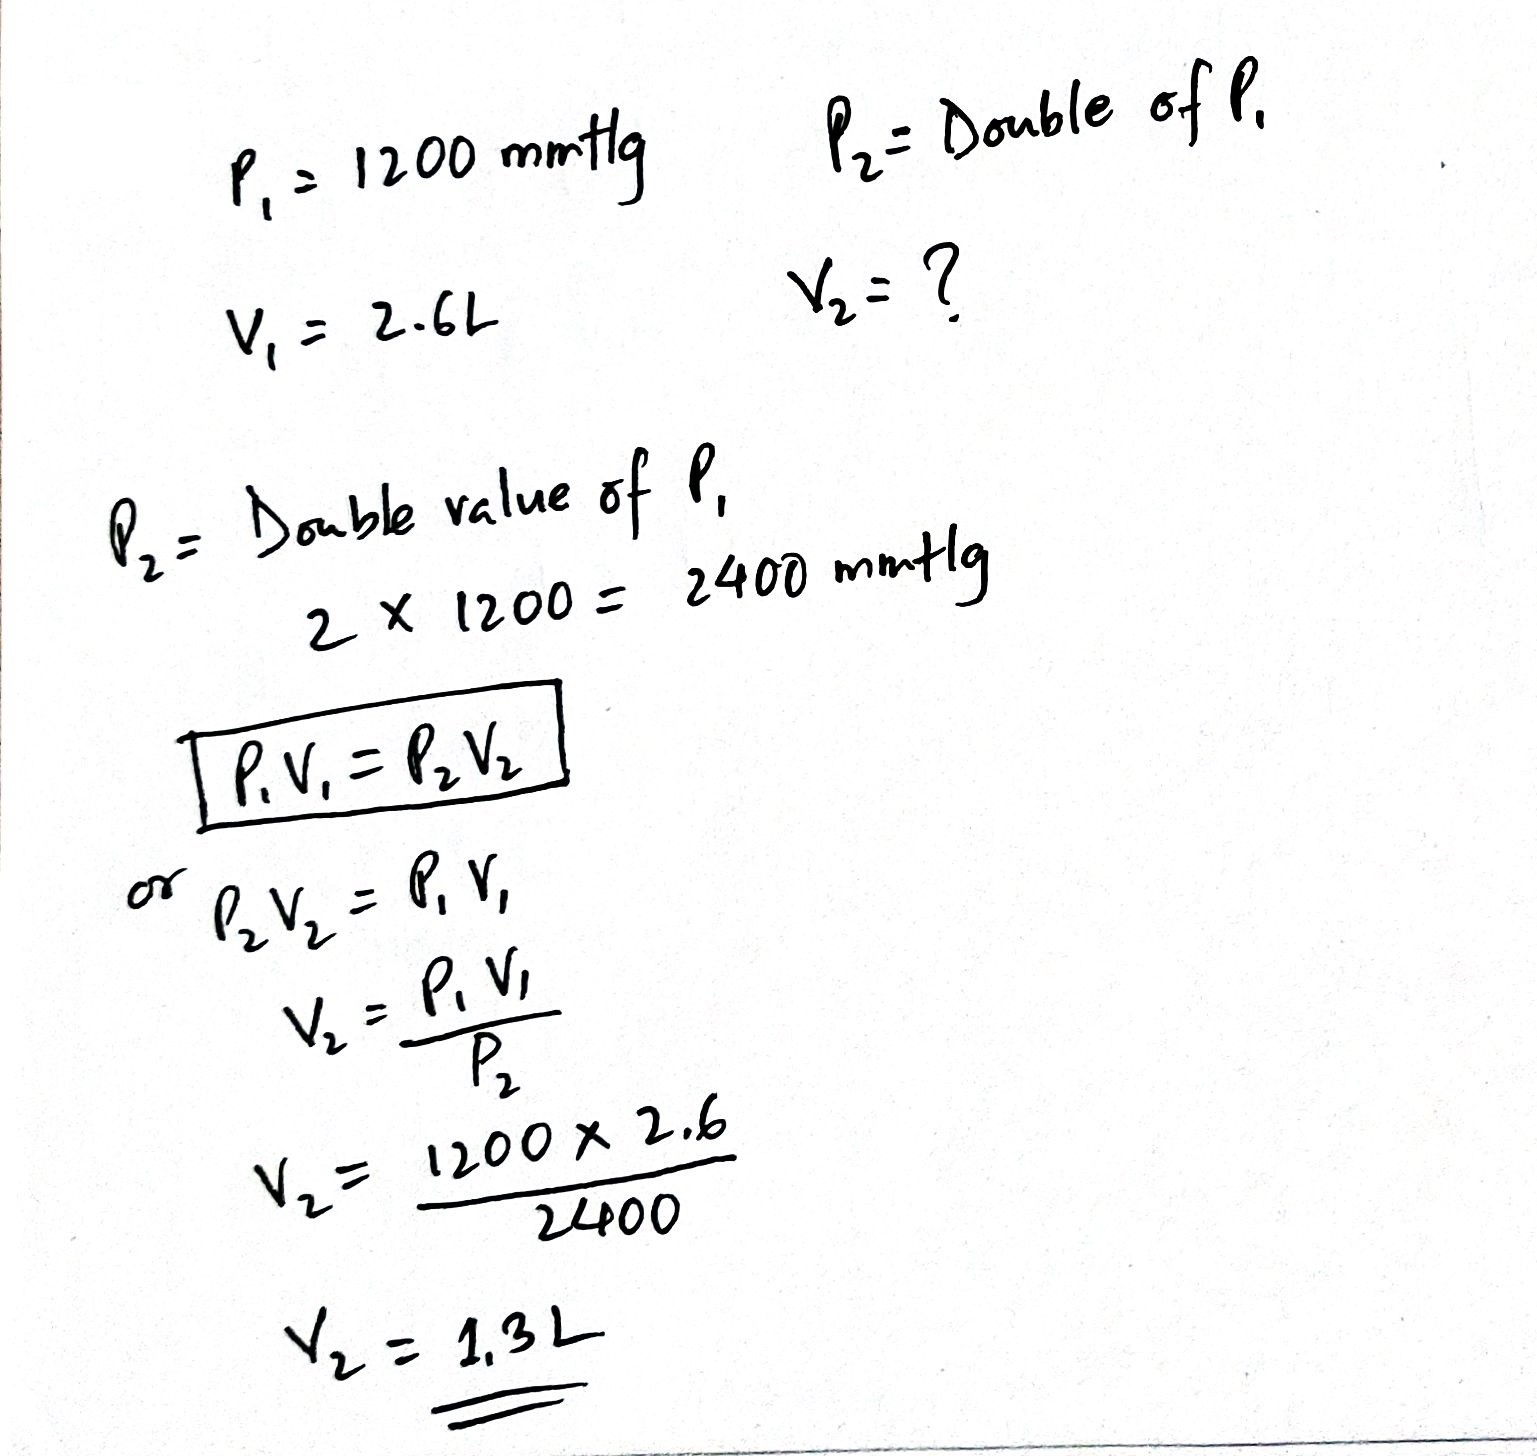 P₁ = 1200 mmHg P₂ = Double of P₁
V₁ = 2.6L V₂ = ?
P₂ = Double value of P₁
2 × 1200 = 2400 mmHg
P₁V₁ = P₂V₂
or P₂V₂ = P₁V₁
V₂ = P₁V₁
P₂
V₂ = 1200 × 2.6
2400
V₂ = 1.3L